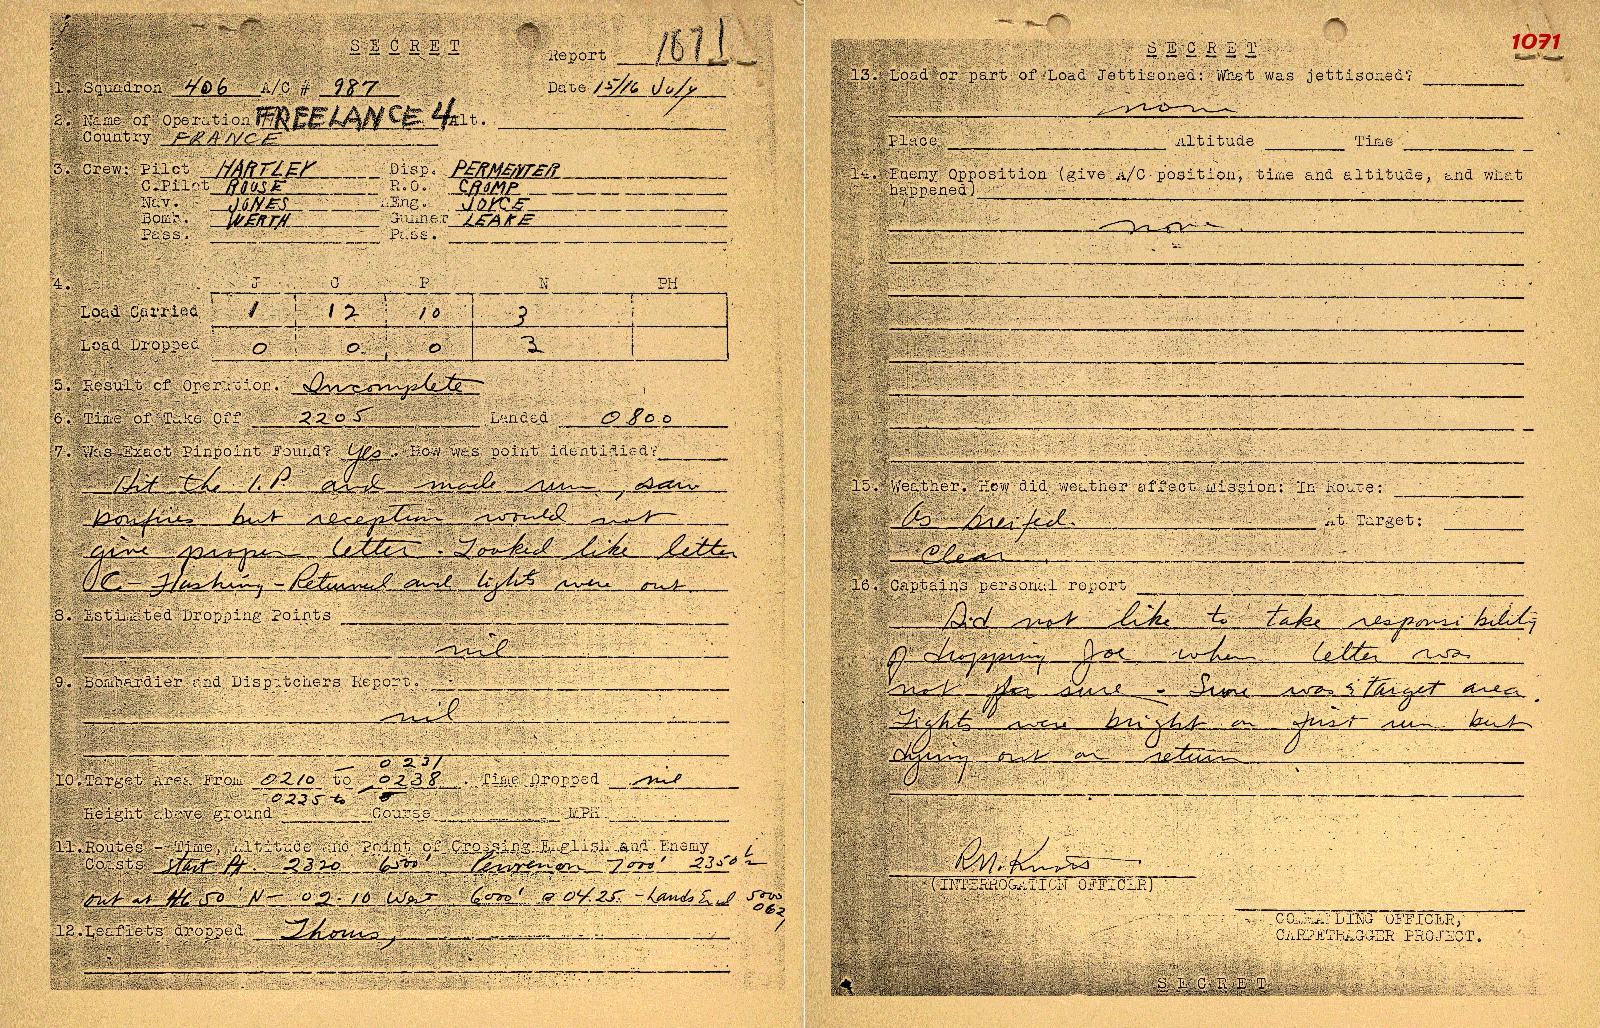 SECRET
Report 1071
1. Squadron 406 A/C # 987 Date 15/16 July
2. Name of Operation FREELANCE 4 Alt.
Country FRANCE
3. Crew: Pilot HARTLEY Disp. PERMENTER
C.Pilot ROUSE R.O. CROMP
Nav. JONES Eng. JOYCE
Bomb. WERTH Gunner LEAKE
Pass. Pass.
4. J C P N PH
Load Carried 1 12 10 3
Load Dropped 0 0 0 3
5. Result of Operation. Incomplete
6. Time of Take Off 2205 Landed 0800
7. Was Exact Pinpoint Found? Yes. How was point identidied?
Hit the I.P. and made run, saw
bonfires but reception would not
give proper letter. Looked like letter
C - Flashing - Returned and lights were out.
8. Estimated Dropping Points
nil
9. Bombardier and Dispatchers Report.
nil
0231
10. Target Area From 0210 to 0238. Time Dropped nil
0225 to
Height above ground Course MPH
11. Routes - Time, Altitude and Point of Crossing English and Enemy
Coasts Start Pt. 2320 6500' 7000' 2350½
out at 46 50' N - 02-10 West 6000' @ 04.25. - Lands End 5000
12. Leaflets dropped
1071
SECRET
13. Load or part of Load Jettisoned: What was jettisoned?
none
Place Altitude Time
14. Enemy Opposition (give A/C position, time and altitude, and what
happened)
none
15. Weather. How did weather affect mission: In Route:
As breifed. At Target:
Clear
16. Captains personal report
Did not like to take responsibility
of dropping Joe when letter was
not for sure - Sure was target area.
Lights were bright on first run but
dying out on return
(INTERROGATION OFFICER)
COMMANDING OFFICER,
CARPETBAGGER PROJECT.
SECRET